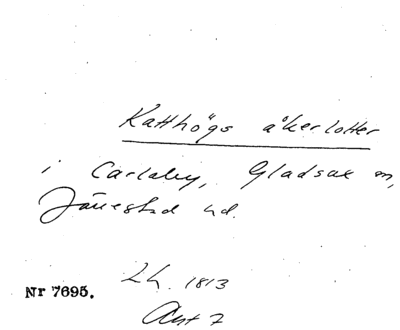 Katthögs åkerlotter
i Carlaby, Gladsax sn,
Järrestad hd.
Lh. 1813
Nr 7695.
Akt 7